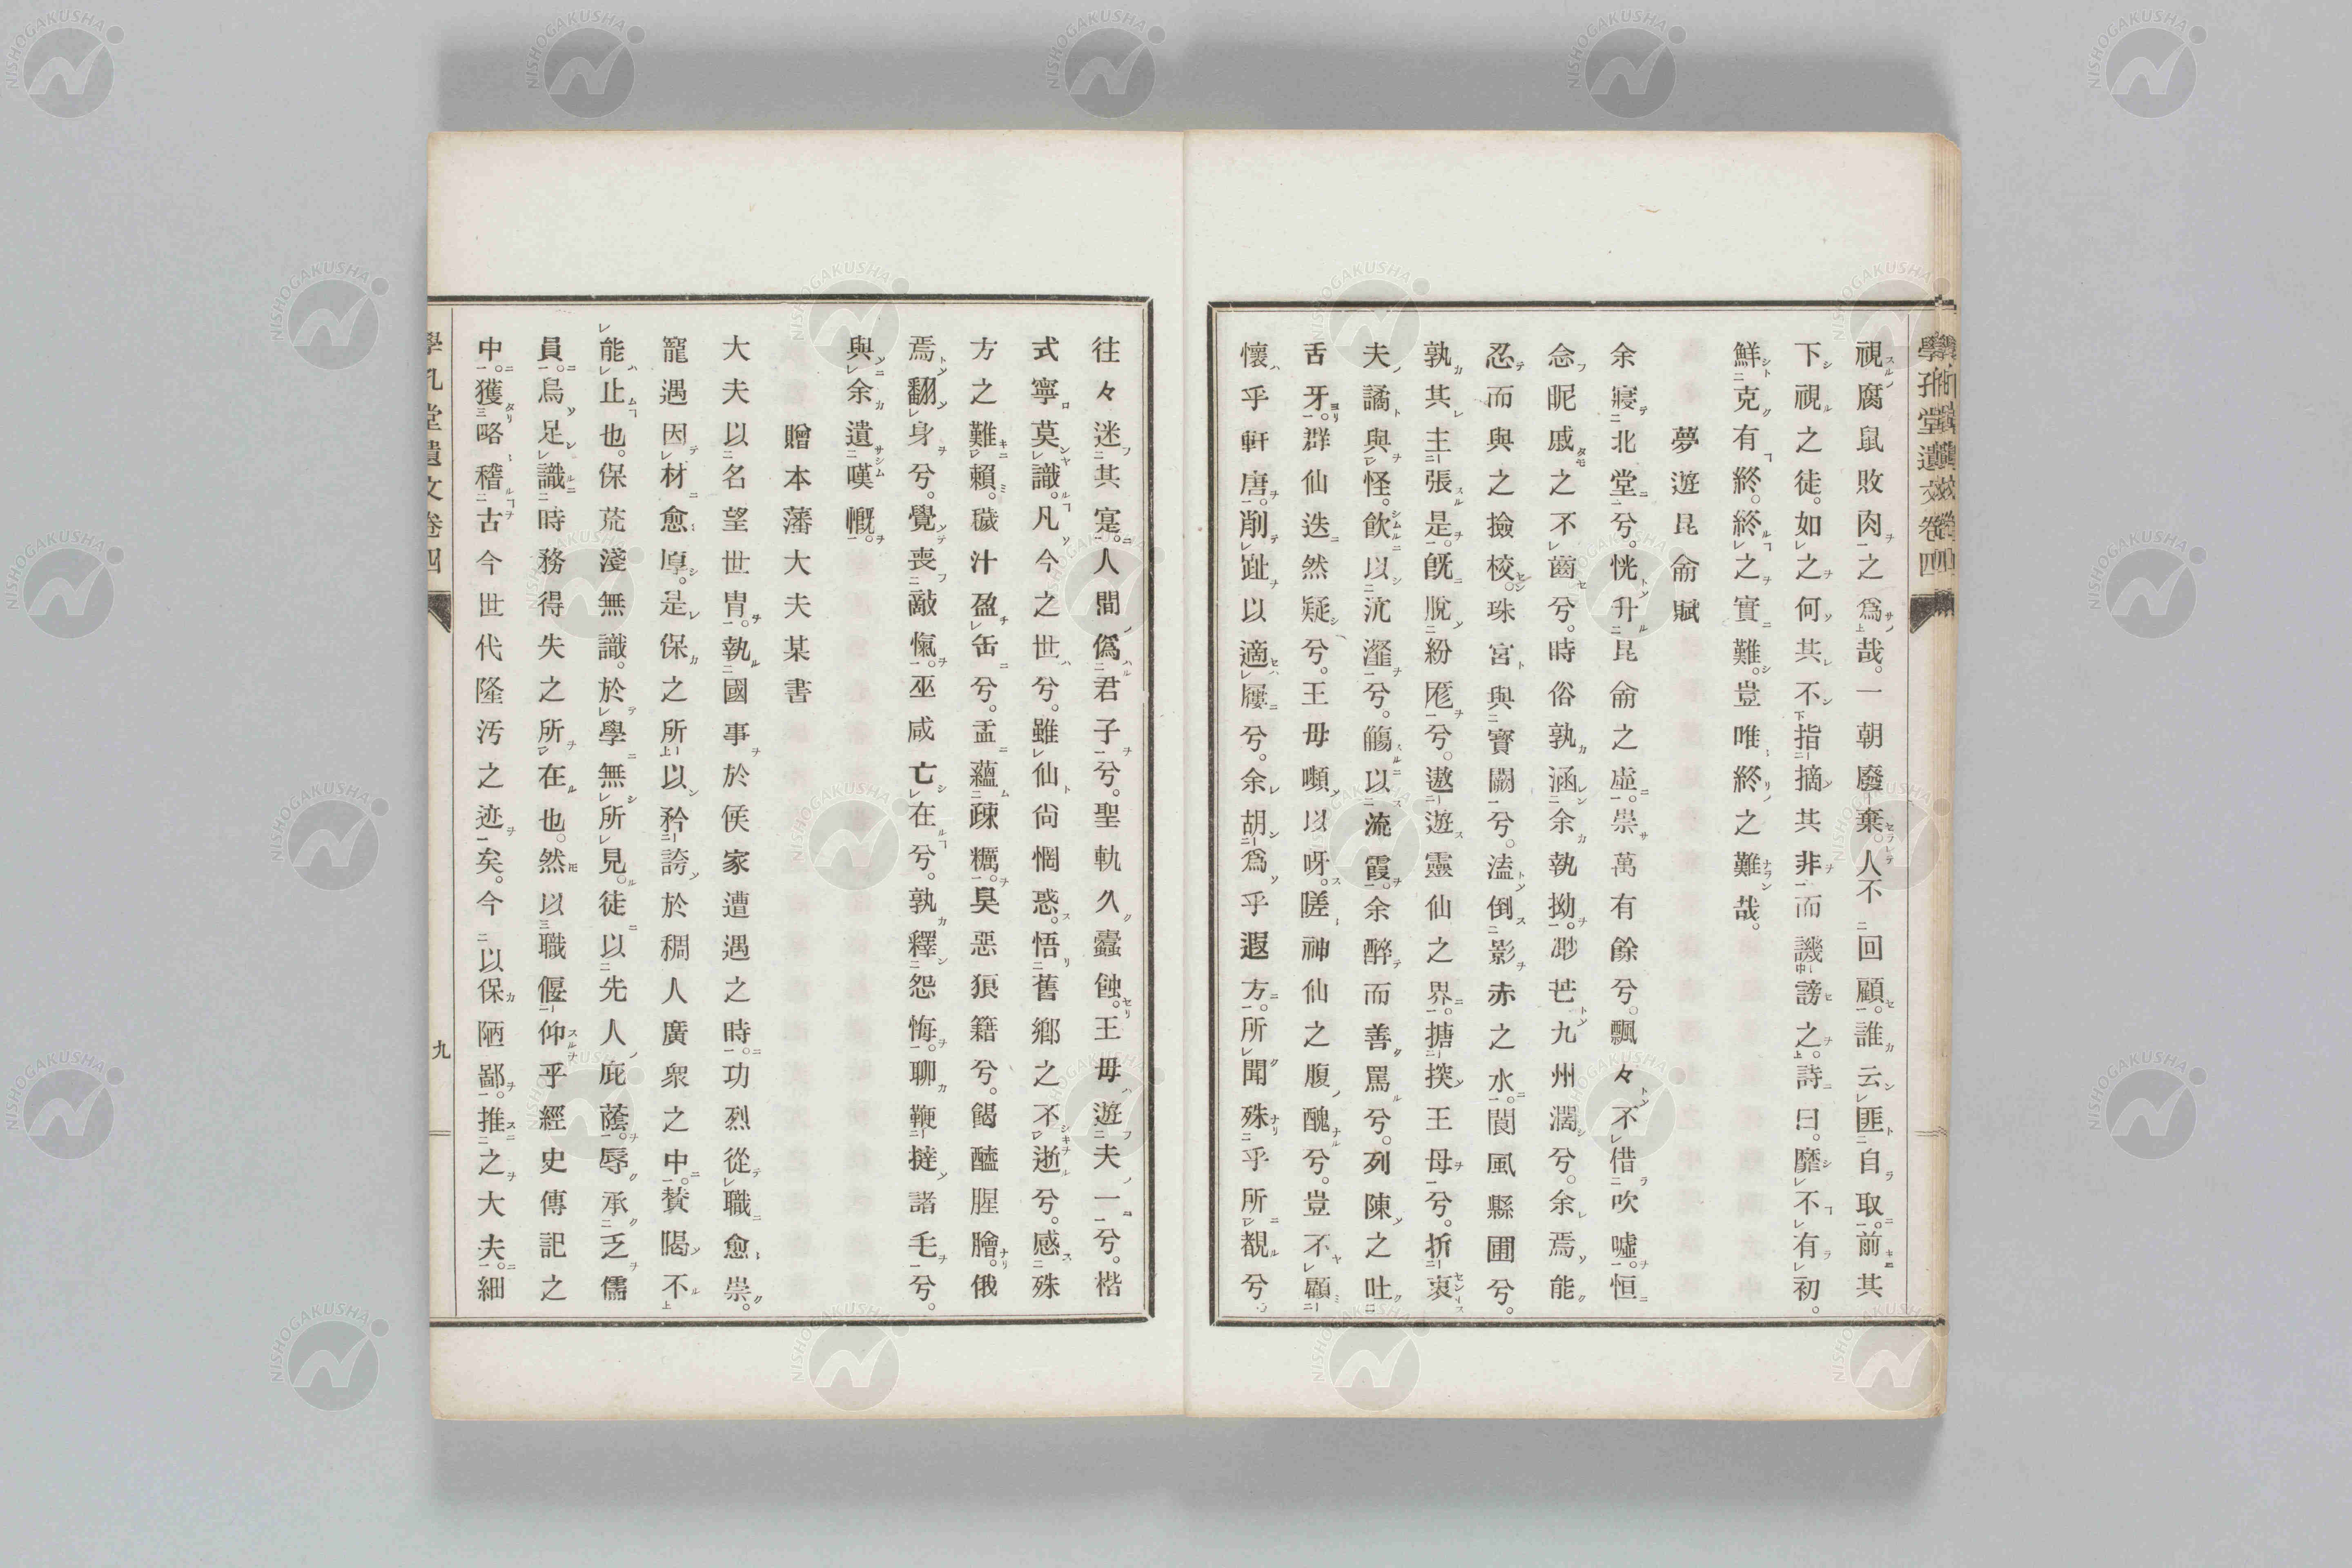 學孔堂遺文卷四
視腐鼠敗肉之爲哉。一朝廢棄。人不回顧。誰云匪自取。前其
下視之徒。如之何其不指摘其非而譏謗之。詩曰。靡不有初。
鮮克有終。終之實難。豈唯終之難哉。
夢遊昆侖賦
余寢北堂兮。恍升昆侖之虛。祟萬有餘兮。飄々不借吹噓。恒
念昵戚之不齒兮。時俗孰涵余執拗。邈芒九州濶兮。余焉能
忍而與之撿校。珠宮與寶闕兮。溘倒影赤之水。閬風縣圃兮。
孰其主張是。旣脫紛尨兮。遨遊靈仙之界。搪揬王母兮。折衷
夫譎與怪。飮以沆瀣兮。觴以流霞。余醉而善罵兮。列陳之吐
舌牙。群仙迭然疑兮。王母嚬以呀。嗟神仙之腹醜兮。豈不顧
懷乎軒唐。削趾以適屨兮。余胡爲乎遐方。所聞殊乎所覩兮
往々迷其寔。人間僞君子兮。聖軌久蠹蝕。王母遊夫一兮。楷
式寧莫識。凡今之世兮。雖仙尙惘惑。悟舊鄕之不逝兮。感殊
方之難賴。穢汁盈缶兮。盂蘊疎糲。昊惡狼籍兮。饐醯腥膾。俄
焉翻身兮。覺喪敵愾。巫咸亡在兮。孰釋怨悔。聊鞭撻諸毛兮。
與余遺嘆慨。
贈本藩大夫某書
大夫以名望世冑。執國事於侯家遭遇之時。功烈從職愈崇。
寵遇因材愈厚。是保之所以矜誇於稠人廣衆之中。贊喝不
能止也。保荒淺無識。於學無所見。徒以先人庇蔭。辱承乏儒
員。烏足識時務得失之所在也。然以職偃仰乎經史傳記之
中。獲略稽古今世代隆汚之迹矣。今以保陋鄙。推之大夫。細
學孔堂遺文卷四
九